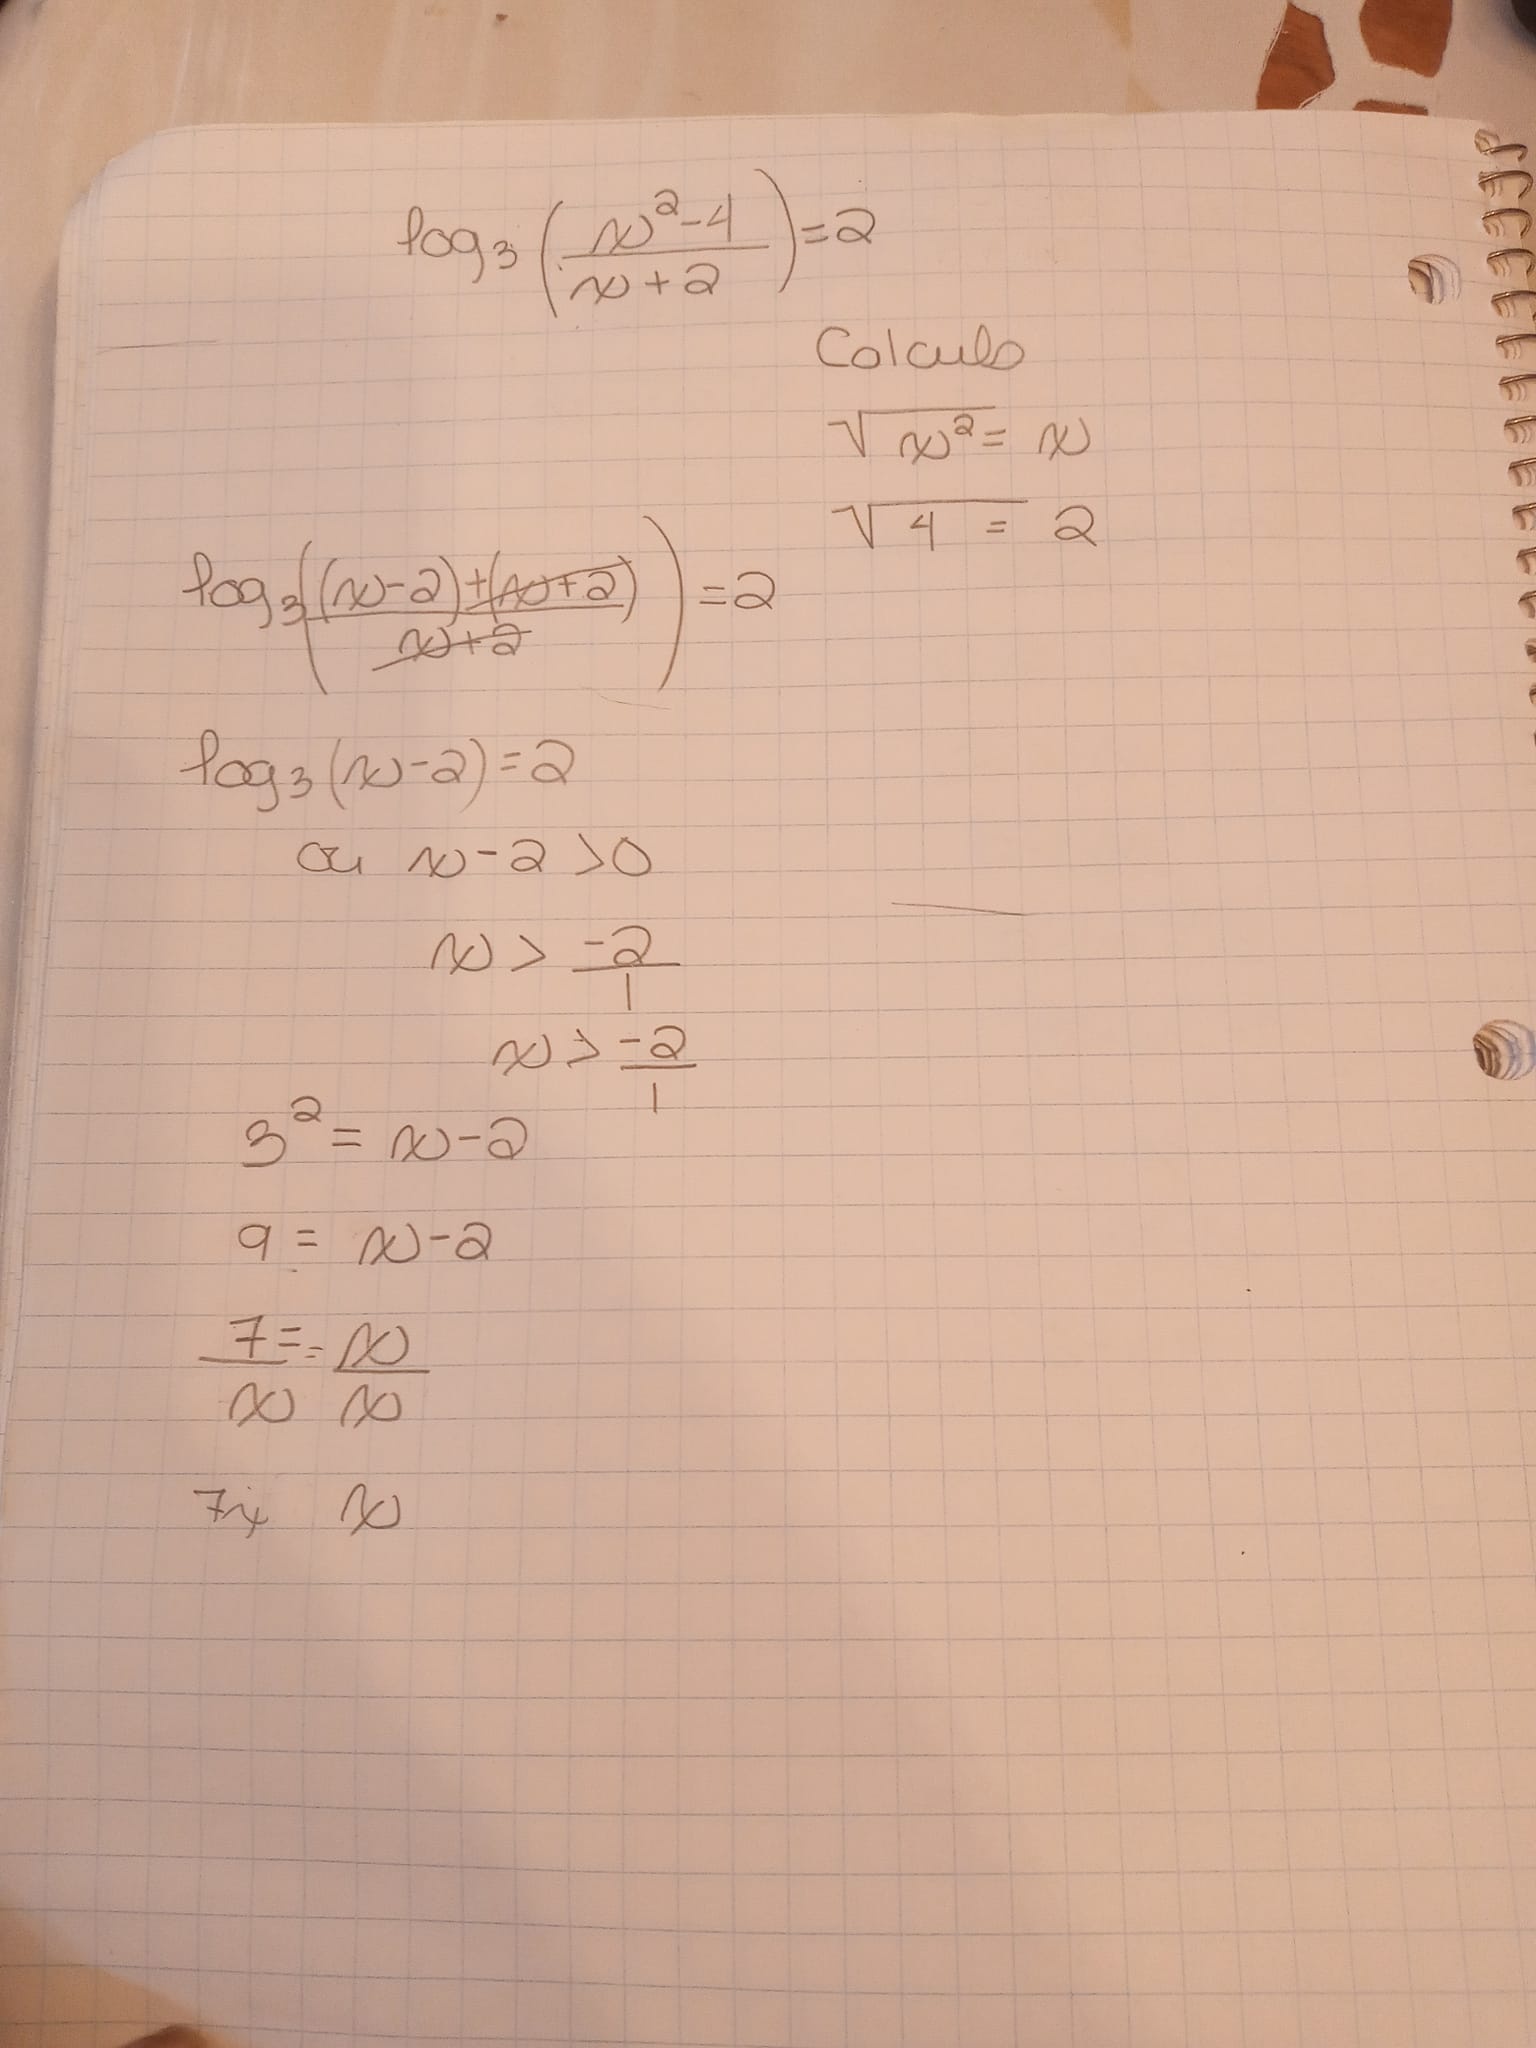 log₃((x²-4)/(x+2))=2
Calculo
√x² = x
√4 = 2
log₃(((x-2)+(x+2))/(x+2))=2
log₃(x-2)=2
x-2 >0
x > -2/1
x > -2/1
3² = x-2
9 = x-2
7/x = x/x
x